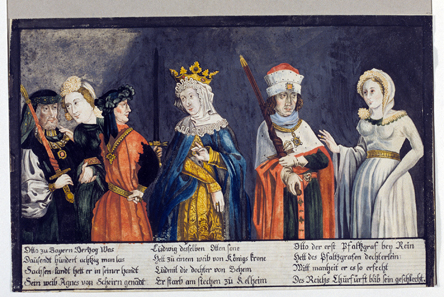 Otto zu Bayern Hertzog Was
Dausendt hundert achzig man las
Sachsen landt hett er in seiner handt
Sein weib Agnes von Scheirn genadt
Ludwig desselben Otten sone
Hett zu einem weib von Königs krone
Ludmil die dochter von Behem
Er starb am stechen zu Kelheim
Otto der erst Pfaltzgraf bey Rein
Hett des Pfaltzgrafen dechterlein
Mitt manheit er es so erfecht
Des Reichs Churfürst blib sein geschlecht